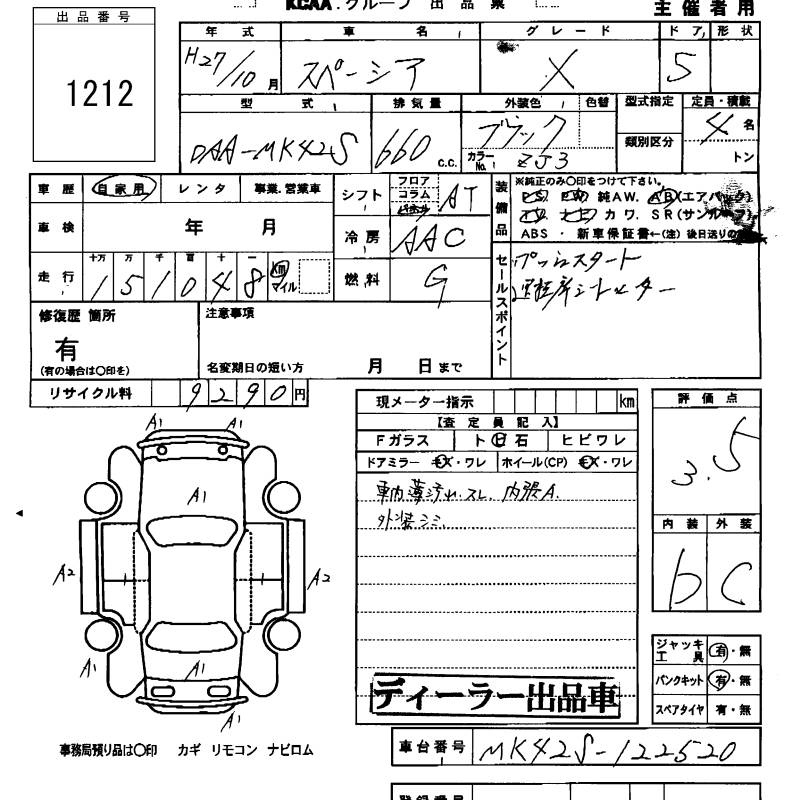 KCAA・グループ 出品票
主催者用
出品番号
1212
年式 車名 グレード ドア 形状
H27/10月 スペーシア X 5
型式 排気量 外装色 色替 型式指定 定員・積載
DAA-MK42S 660 c.c. ブラック カラーNo. ZJ3 類別区分 4名 トン
車歴 自家用 レンタ 事業.営業車 シフト フロア コラム AT
車検 年 月 冷房 AAC
走行 十万 万 千 百 十 一 151048 km マイル 燃料 G
装備品 ※純正のみ○印をつけて下さい。
PS PW 純AW. AB(エアバック)
カワ. SR(サンルーフ)
ABS・新車保証書←(注)後日送りの
セールスポイント プッシュスタート
運転席シートヒーター
修復歴 箇所 注意事項
有
(有の場合は○印を) 名変期日の短い方 月 日まで
リサイクル料 9290円
現メーター指示 km
【査定員記入】
Fガラス ト日石 ヒビワレ
ドアミラー キズ・ワレ ホイール(CP) キズ・ワレ
車内薄汚れ.スレ. 内張A.
外装シミ.
評価点
3.5
内装 外装
b C
A1 A1
A1
A2 A2
A1 A1
A1
ジャッキ工具 有・無
パンクキット 有・無
スペアタイヤ 有・無
ディーラー出品車
事務局預り品は○印 カギ リモコン ナビロム
車台番号 MK42S-122520
登録番号